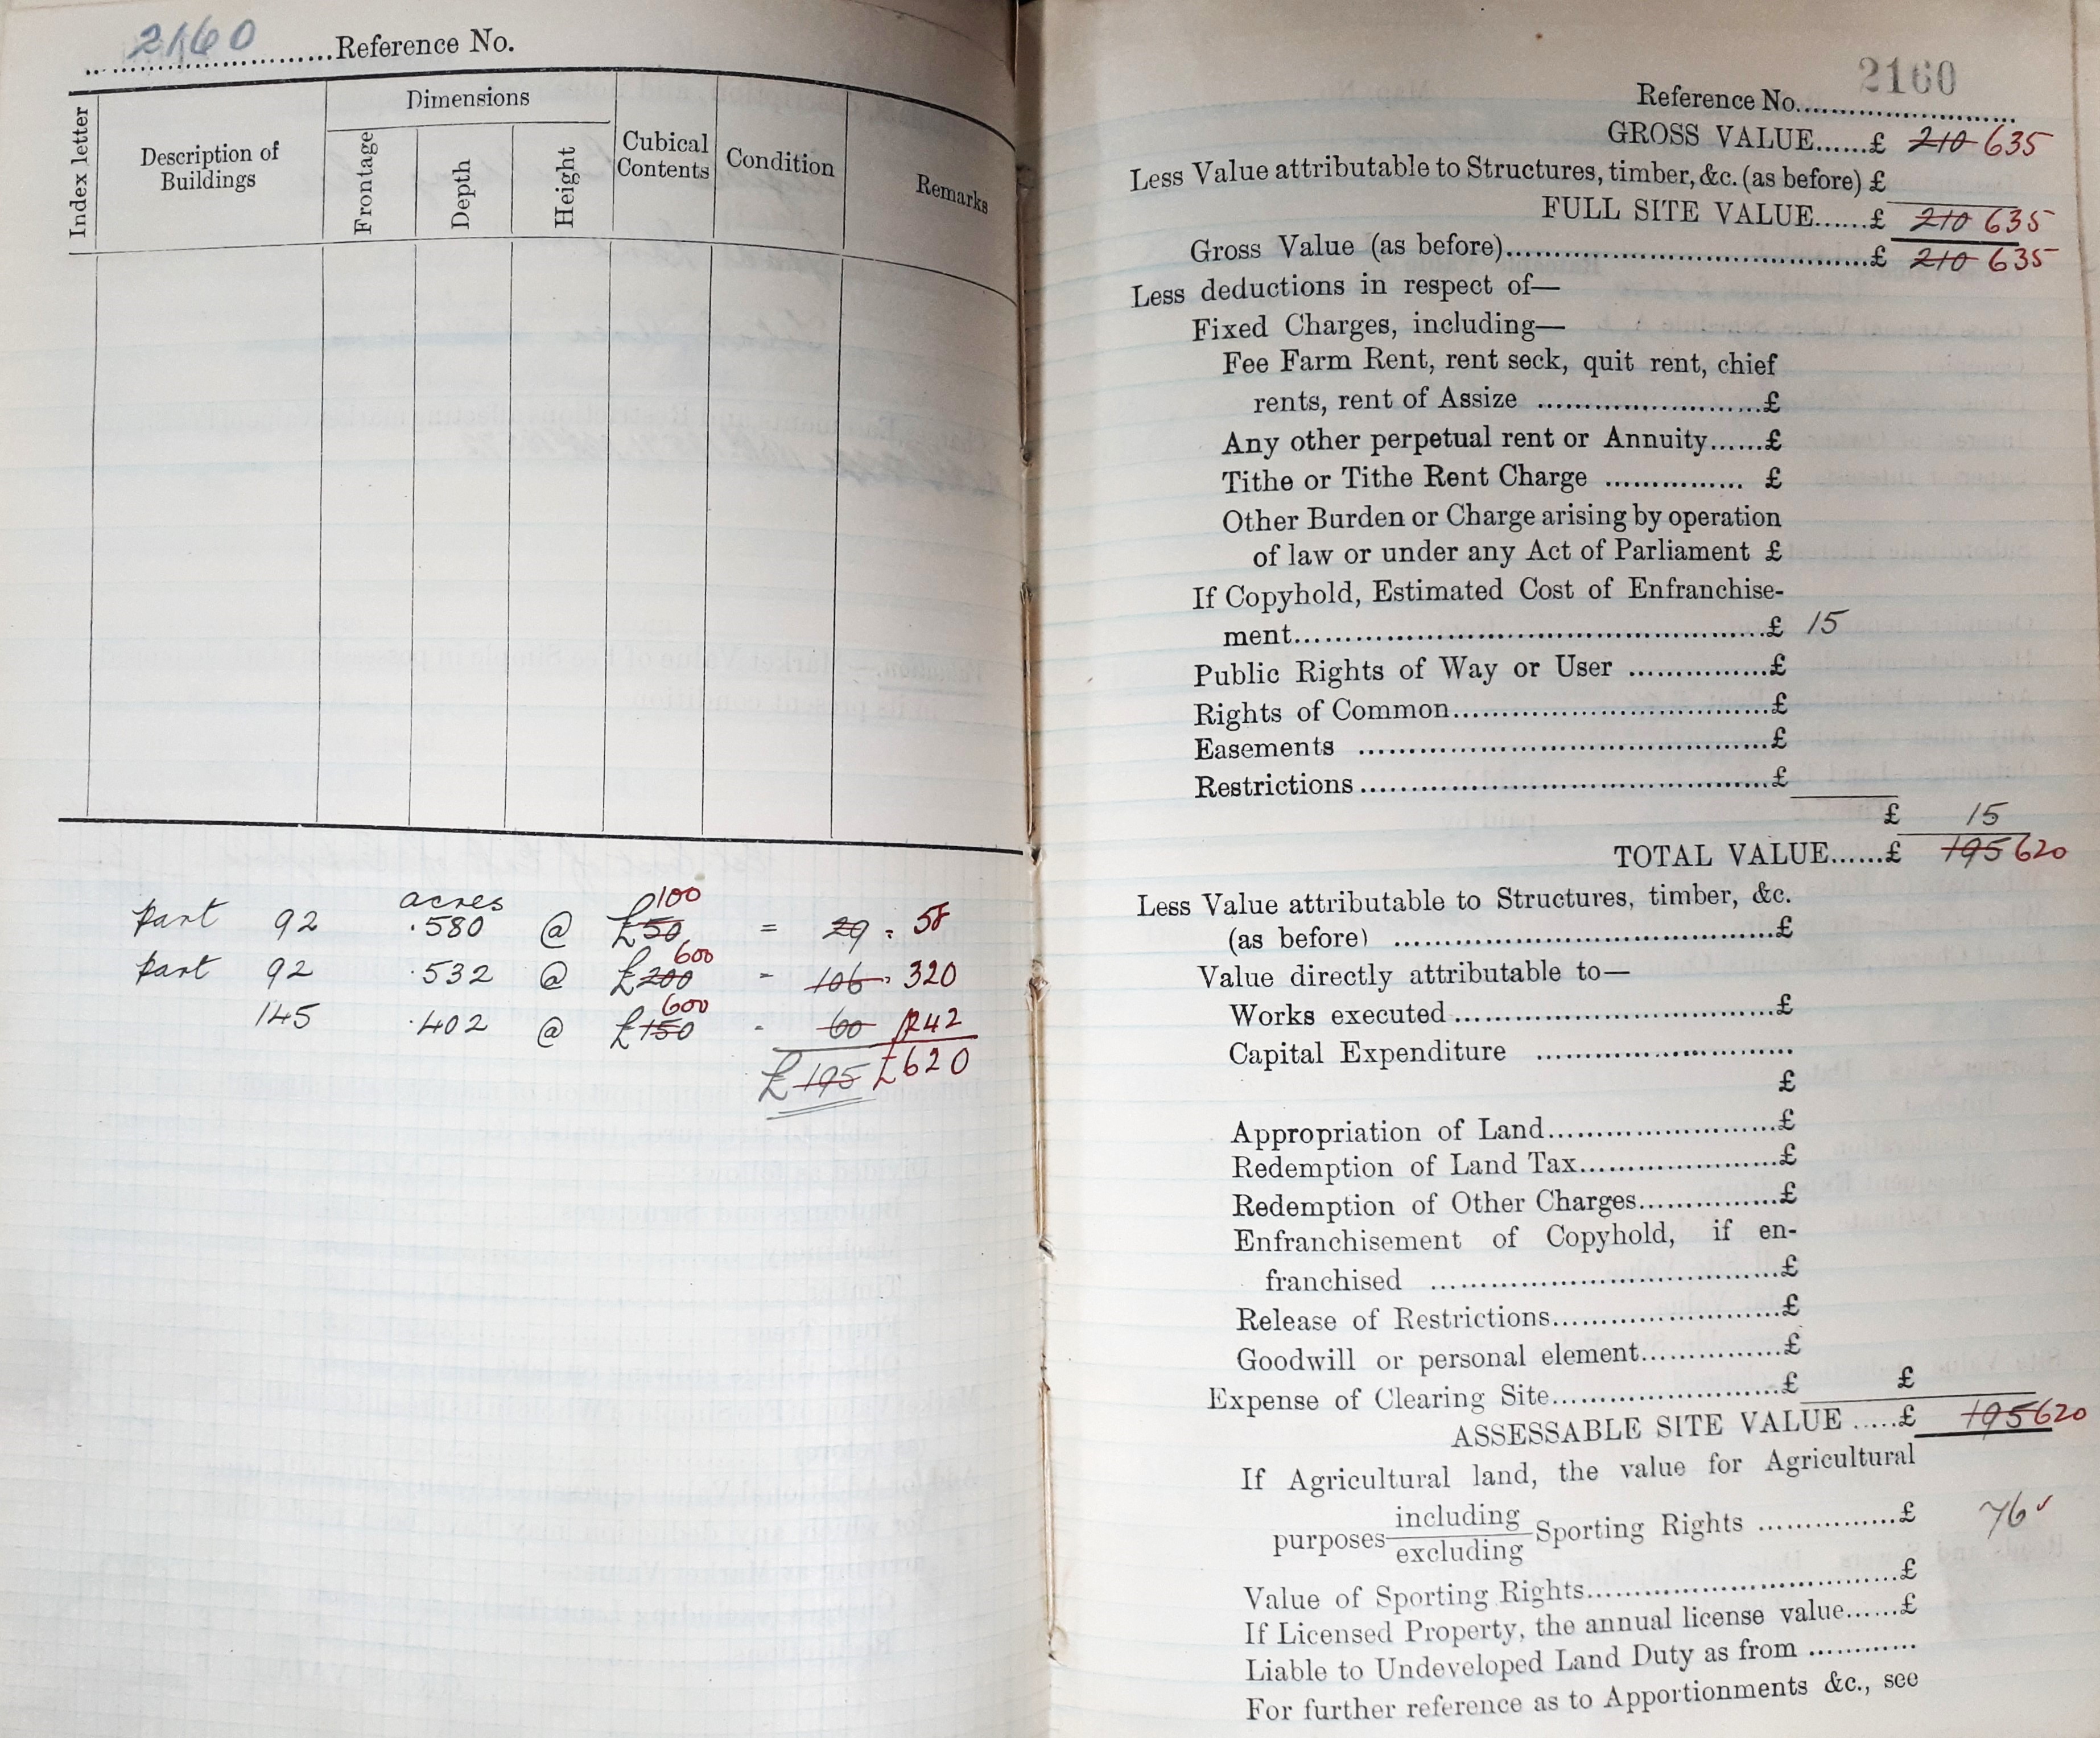 2160 Reference No.
Index letter
Description of Buildings
Dimensions
Frontage
Depth
Height
Cubical Contents
Condition
Remarks
acres
part 92 .580 @ £50 100 = 29 . 58
part 92 .532 @ £200 600 - 106 . 320
145 .402 @ £150 600 - 60 242
£195 £620
2160
Reference No.
GROSS VALUE......£ 210 635
Less Value attributable to Structures, timber, &c. (as before) £
FULL SITE VALUE......£ 210 635
Gross Value (as before)......£ 210 635
Less deductions in respect of—
Fixed Charges, including—
Fee Farm Rent, rent seck, quit rent, chief
rents, rent of Assize ......£
Any other perpetual rent or Annuity......£
Tithe or Tithe Rent Charge ...... £
Other Burden or Charge arising by operation
of law or under any Act of Parliament £
If Copyhold, Estimated Cost of Enfranchise-
ment......£ 15
Public Rights of Way or User ......£
Rights of Common......£
Easements ......£
Restrictions......£
£ 15
TOTAL VALUE......£ 195 620
Less Value attributable to Structures, timber, &c.
(as before) ......£
Value directly attributable to—
Works executed......£
Capital Expenditure ......
£
Appropriation of Land......£
Redemption of Land Tax......£
Redemption of Other Charges......£
Enfranchisement of Copyhold, if en-
franchised ......£
Release of Restrictions......£
Goodwill or personal element......£
Expense of Clearing Site......£ £
ASSESSABLE SITE VALUE .....£ 195 620
If Agricultural land, the value for Agricultural
purposes including excluding Sporting Rights ......£ 76 ✓
Value of Sporting Rights......£
If Licensed Property, the annual license value......£
Liable to Undeveloped Land Duty as from ............
For further reference as to Apportionments &c., see